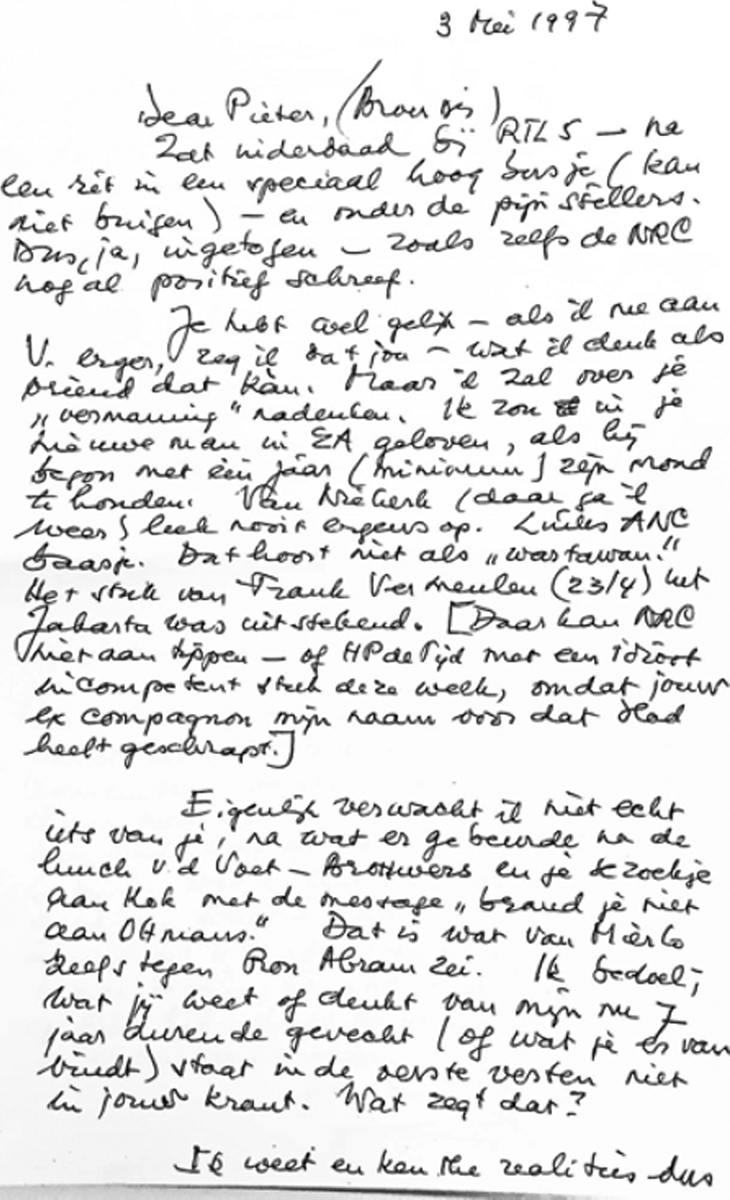 3 Mei 1997
Dear Pieter, (Broertjes)
Zat inderdaad bij RTL 5 — na
een rit in een speciaal hoog busje (kan
niet buigen) — en onder de pijnstillers.
Dus, ja, ingetogen — zoals zelfs de NRC
nogal positief schreef.
Je hebt wel gelijk — als ik me aan
V. erger, zeg ik dat jou — wat ik denk als
vriend dat kan. Maar ik zal over je
„vermaning" nadenken. Ik zou in je
nieuwe man in ZA geloven, als hij
begon met één jaar (minimum) zijn mond
te houden. Van Niekerk (daar ga ik
weer) leek nooit ergens op. Links ANC
baasje. Dat hoort niet als „wartawan."
Het stuk van Frank Vermeulen (23/4) uit
Jakarta was uitstekend. [Daar kan NRC
niet aan tippen — of HP de Tijd met een idioot
incompetent stuk deze week, omdat jouw
ex compagnon mijn naam voor dat blad
heeft geschrapt.]
Eigenlijk verwacht ik niet echt
iets van je, na wat er gebeurde na de
lunch v.d. Voet — Brouwers en je bezoekje
aan Kok met de message „brand je niet
aan Oltmans." Dat is wat van Mierlo
zelfs tegen Ron Abram zei. Ik bedoel,
wat jij weet of denkt van mijn nu 7
jaar durende gevecht (of wat je er van
vindt) staat in de verste verten niet
in jouw krant. Wat zegt dat?
Ik weet en ken the realities dus